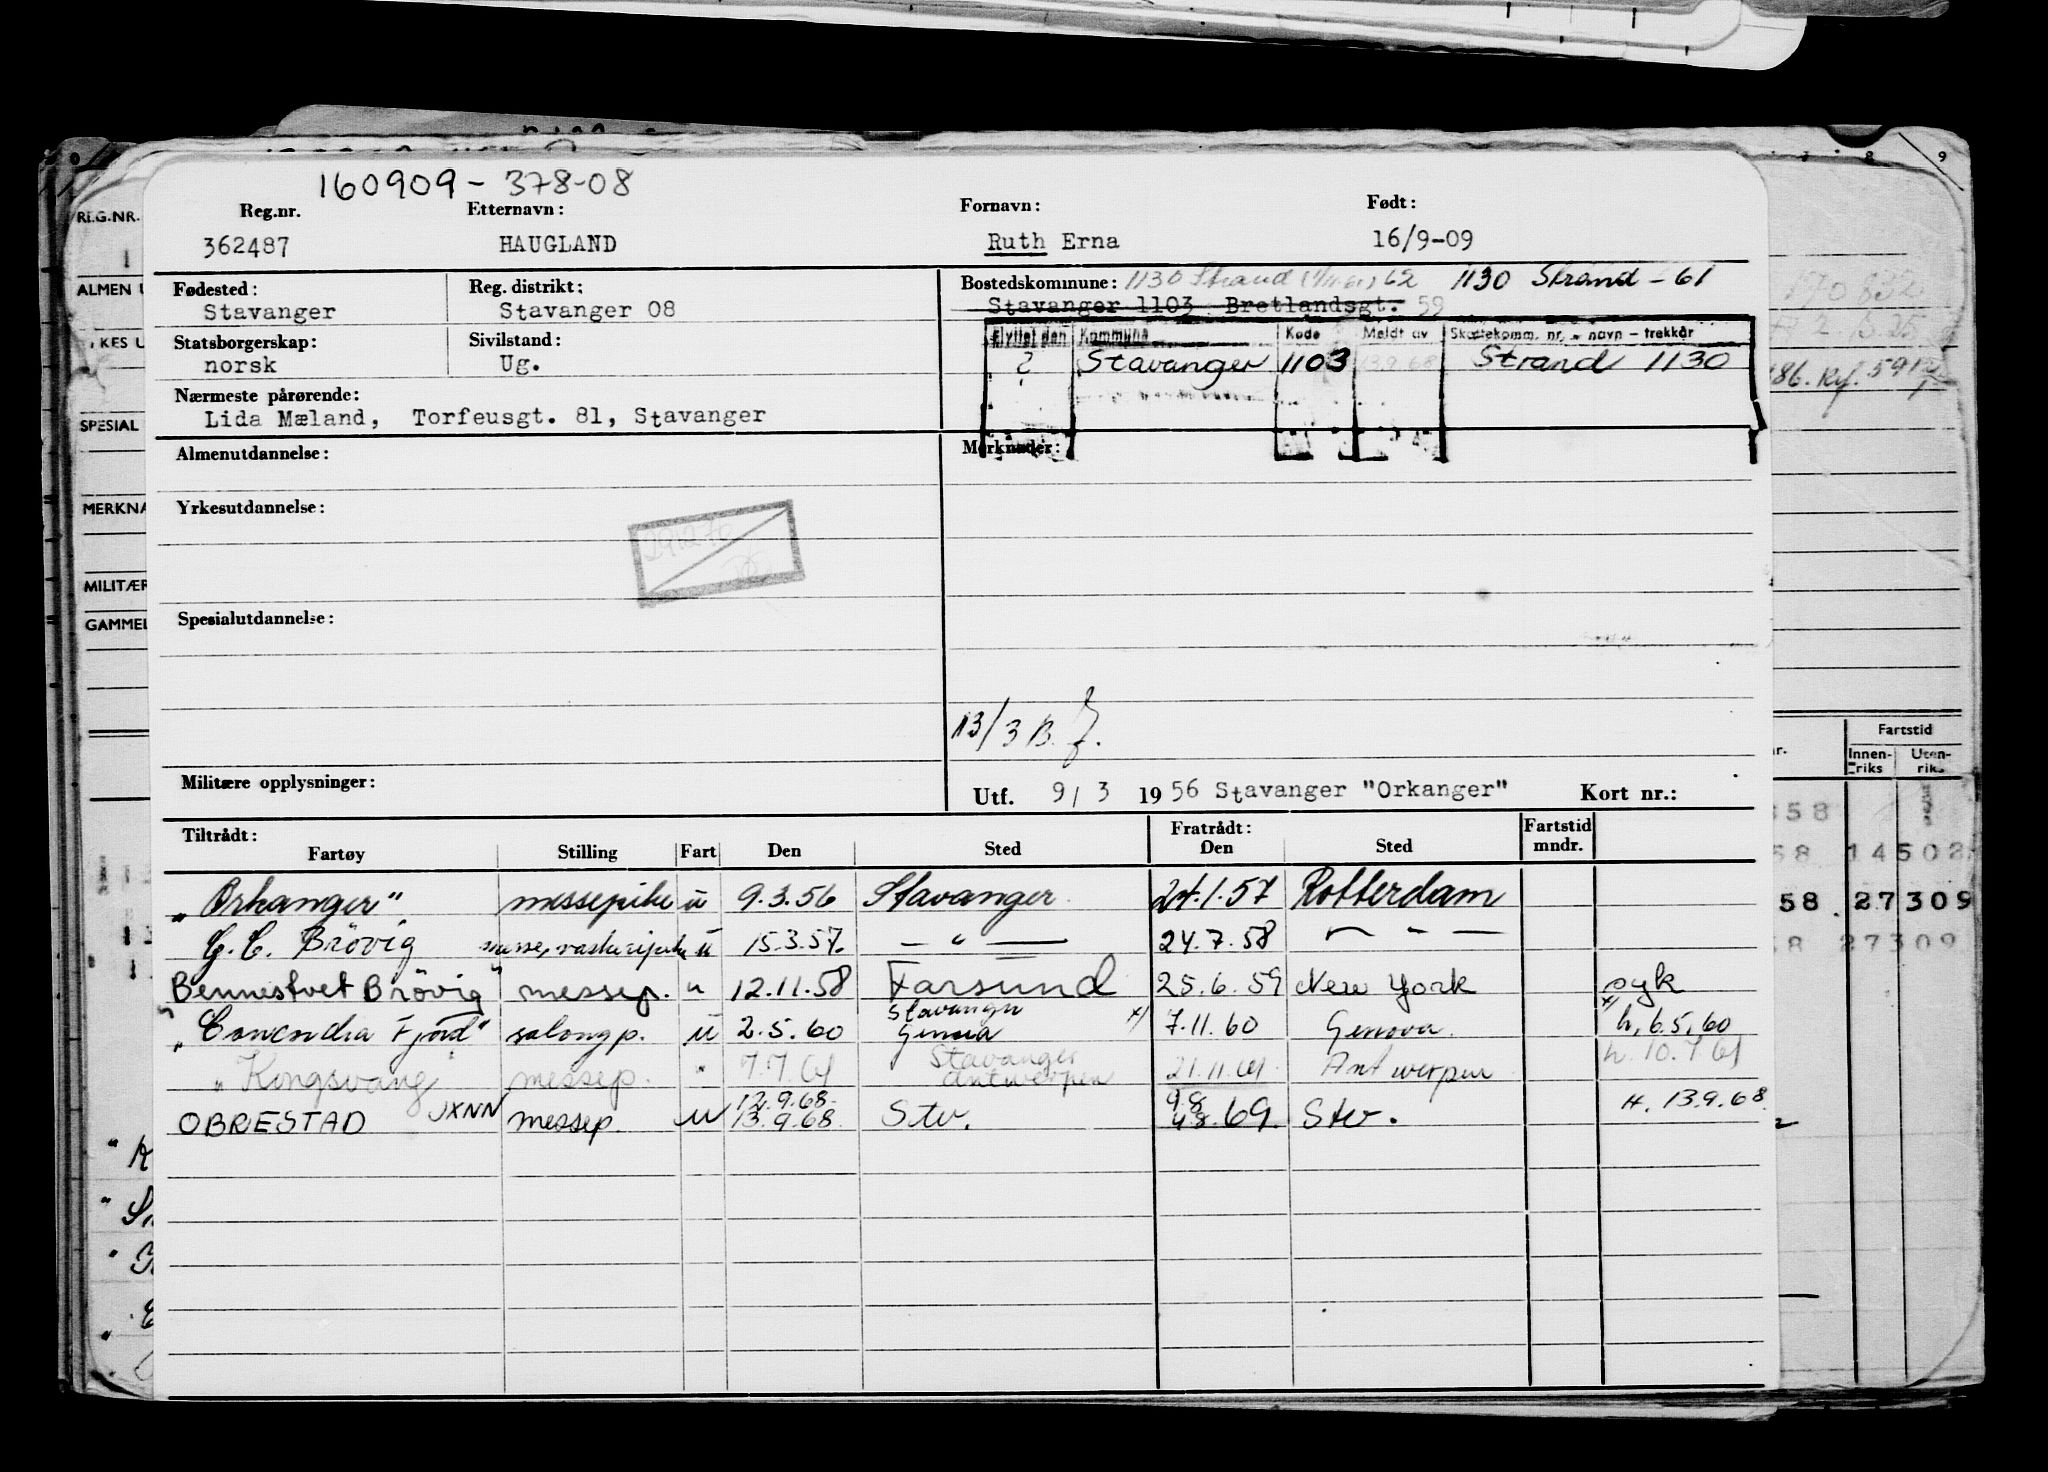 160909 - 378-08
Reg.nr. Etternavn: Fornavn: Født:
362487 HAUGLAND Ruth Erna 16/9-09
Fødested: Reg. distrikt: Bostedskommune: 1130 Strand 62 1130 Strand - 61
Stavanger Stavanger 08 Stavanger 1103 Bretlandsgt. 59
Statsborgerskap: Sivilstand: Flyttet den Kommune Kode Meldt av Skattekomm. nr. - navn - trekkår
norsk Ug. ? Stavanger 1103 13.9.68 Strand 1130
Nærmeste pårørende:
Lida Mæland, Torfeusgt. 81, Stavanger
Almenutdannelse: Merknader:
Yrkesutdannelse:
Spesialutdannelse:
13/3 B.
Militære opplysninger: Utf. 9/3 1956 Stavanger "Orkanger" Kort nr.:
Tiltrådt: Fratrådt: Fartstid
Fartøy Stilling Fart Den Sted Den Sted mndr.
"Orkanger" messepike u 9.3.56 Stavanger 24.1.57 Rotterdam
G. C. Brövig u 15.3.57 — " — 24.7.58 — " —
Bennestvet Brövig" messep. " 12.11.58 Farsund 25.6.59 New York syk
Stavanger x/ x/
"Concordia Fjord" salongp. u 2.5.60 Genova 7.11.60 Genova. h, 6.5,60
Stavanger
"Kongsvang" messep. " 7.7.61 Antwerpen 21.11.61 Antwerpen h. 10.7.61
12.9.68 9.8
OBRESTAD JXNN messep. u 13.9.68 Stv. 4.8.69. Stv. H. 13.9.68
REG.NR.
ALMEN U
YKES U
SPESIAL
MERKNA
MILITÆR
GAMMEL
Fartstid
Innen-riks Uten-riks
58 14502
58. 27309
58 27309